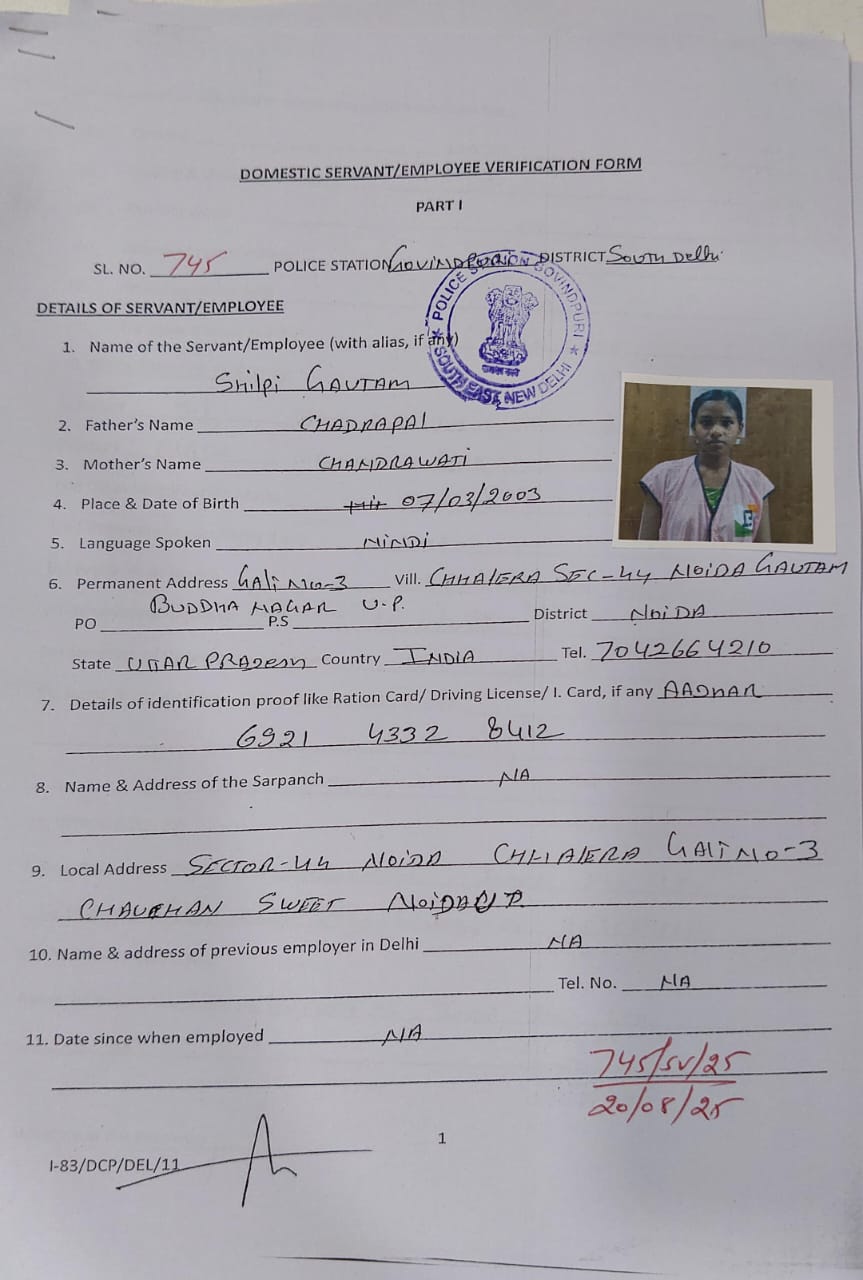 DOMESTIC SERVANT/EMPLOYEE VERIFICATION FORM
PART I
SL. NO. 745 POLICE STATION GOVINDPURI DISTRICT South Delhi
DETAILS OF SERVANT/EMPLOYEE
POLICE STATION GOVINDPURI
SOUTH EAST NEW DELHI
1. Name of the Servant/Employee (with alias, if any)
Shilpi GAUTAM
2. Father's Name CHADRAPAl
3. Mother's Name CHANDRAWATi
4. Place & Date of Birth 07/03/2003
5. Language Spoken HiNDi
6. Permanent Address GAli No-3 Vill. CHHAlERA SEC-44 NOiDA GAUTAM
BUDDHA NAGAR U.P.
PO P.S District NOiDA
State UTTAR PRADESH Country INDIA Tel. 7042664210
7. Details of identification proof like Ration Card/ Driving License/ I. Card, if any AADHAR
6921 4332 8412
8. Name & Address of the Sarpanch NA
9. Local Address SECTOR-44 NOiDA CHHAlERA GAli No-3
CHAUHAN SWEET NOiDA U P.
10. Name & address of previous employer in Delhi NA
Tel. No. NA
11. Date since when employed NA
745/SV/25
20/08/25
1
I-83/DCP/DEL/11